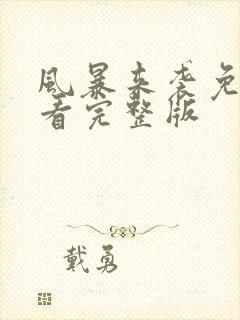 風暴来袭免
看完整版
戴勇